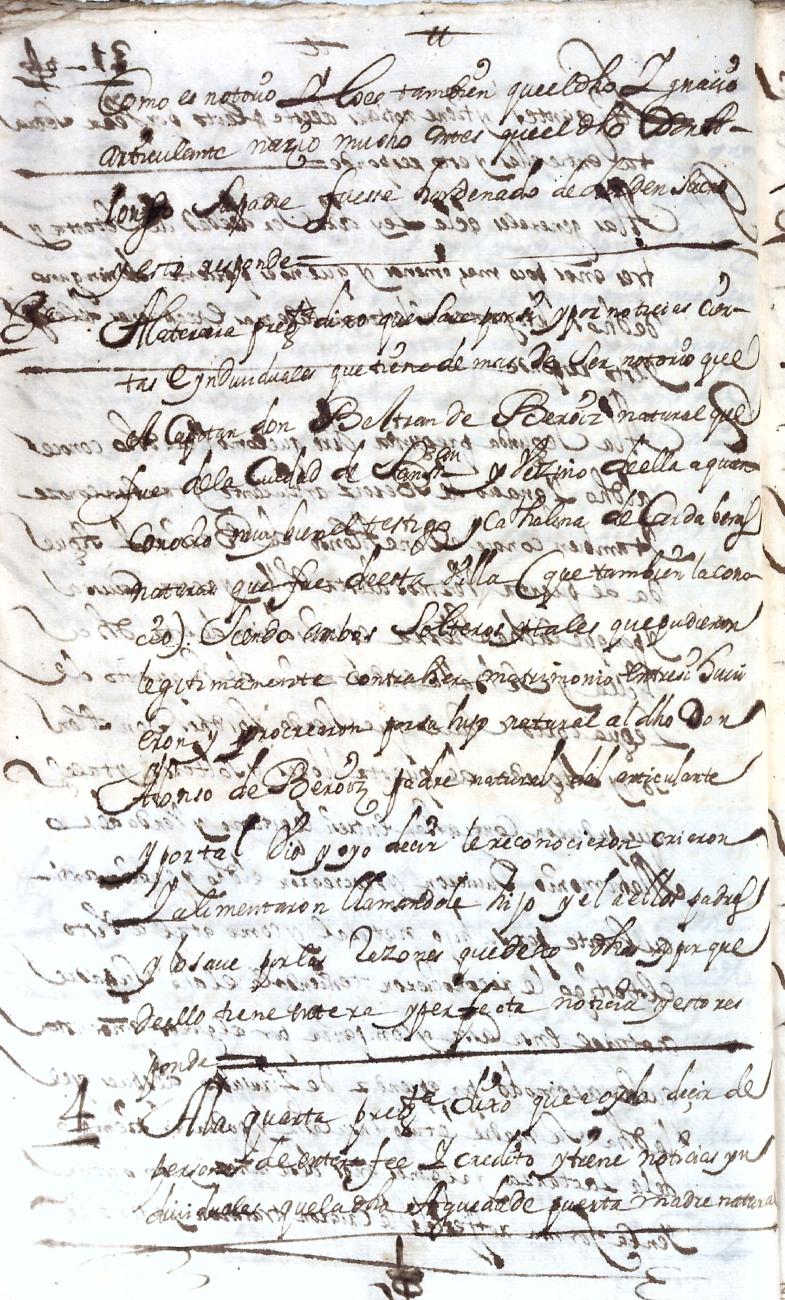 como es notorio Y lo es tambien que el dho Ygnacio
articulante nazio mucho antes que el dho Don A-
lonso su padre fuesse hordenado de orden sacro
y esto responde
3a A la tercera pregta dixo que save por si y por noticias cier-
tas E yndividuales que tiene de mas de ser notorio que
el Capitan don Beltran de Beroiz natural que
fue de la Ciudad de San Sn y Vezino de ella a quien
conocio muy bien el testigo y Cathalina de Cardaberas
natural que fue de esta Villa (que tambien la cono-
cio) Siendo ambos Solteros y tales que pudieron
legitimamente contraher matrimonio entre si huvi
eron y procrearon por su hijo natural al dho Don
Alonso de Beroiz padre natural del articulante
y por tal Vio y oyo decir le reconocieron criaron
Y alimentaron llamandole hijo y el a ellos padres
y lo save por las Razones que deto dhas y porque
de ello tiene entera y perfecta noticia y esto res
ponde
4 A la quarta pregta dixo que a oydo deçir de
personas de entera fee Y credito y tiene noticias yn
dividuales que la dha Agueda de puerta madre natural